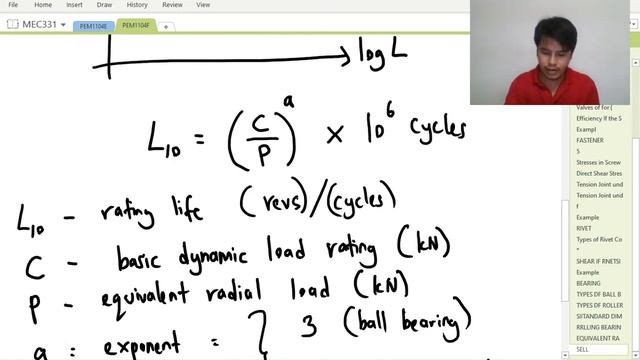 File Home Insert Draw History Review View
MEC331 PEM1104E PEM1104F
log L
L10 = (C/P)^a × 10^6 cycles
L10 - rating life (revs)/(cycles)
C - basic dynamic load rating (kN)
P - equivalent radial load (kN)
a = exponent = { 3 (ball bearing)
Valves of for(
Efficiency If the S
Exampl
FASTENER
5
Stresses in Screw
Direct Shear Stres
Tension Joint und
Tension Joint und
f
Example
RIVET
Types of Rivet Co
"
SHEAR IF RNETSI
Example
BEARING
TYPES DF BALL B
TYPES DF ROLLER
SITANDARD DIM
RRLLING BEARIN
EQUIVALENT RA
SELL